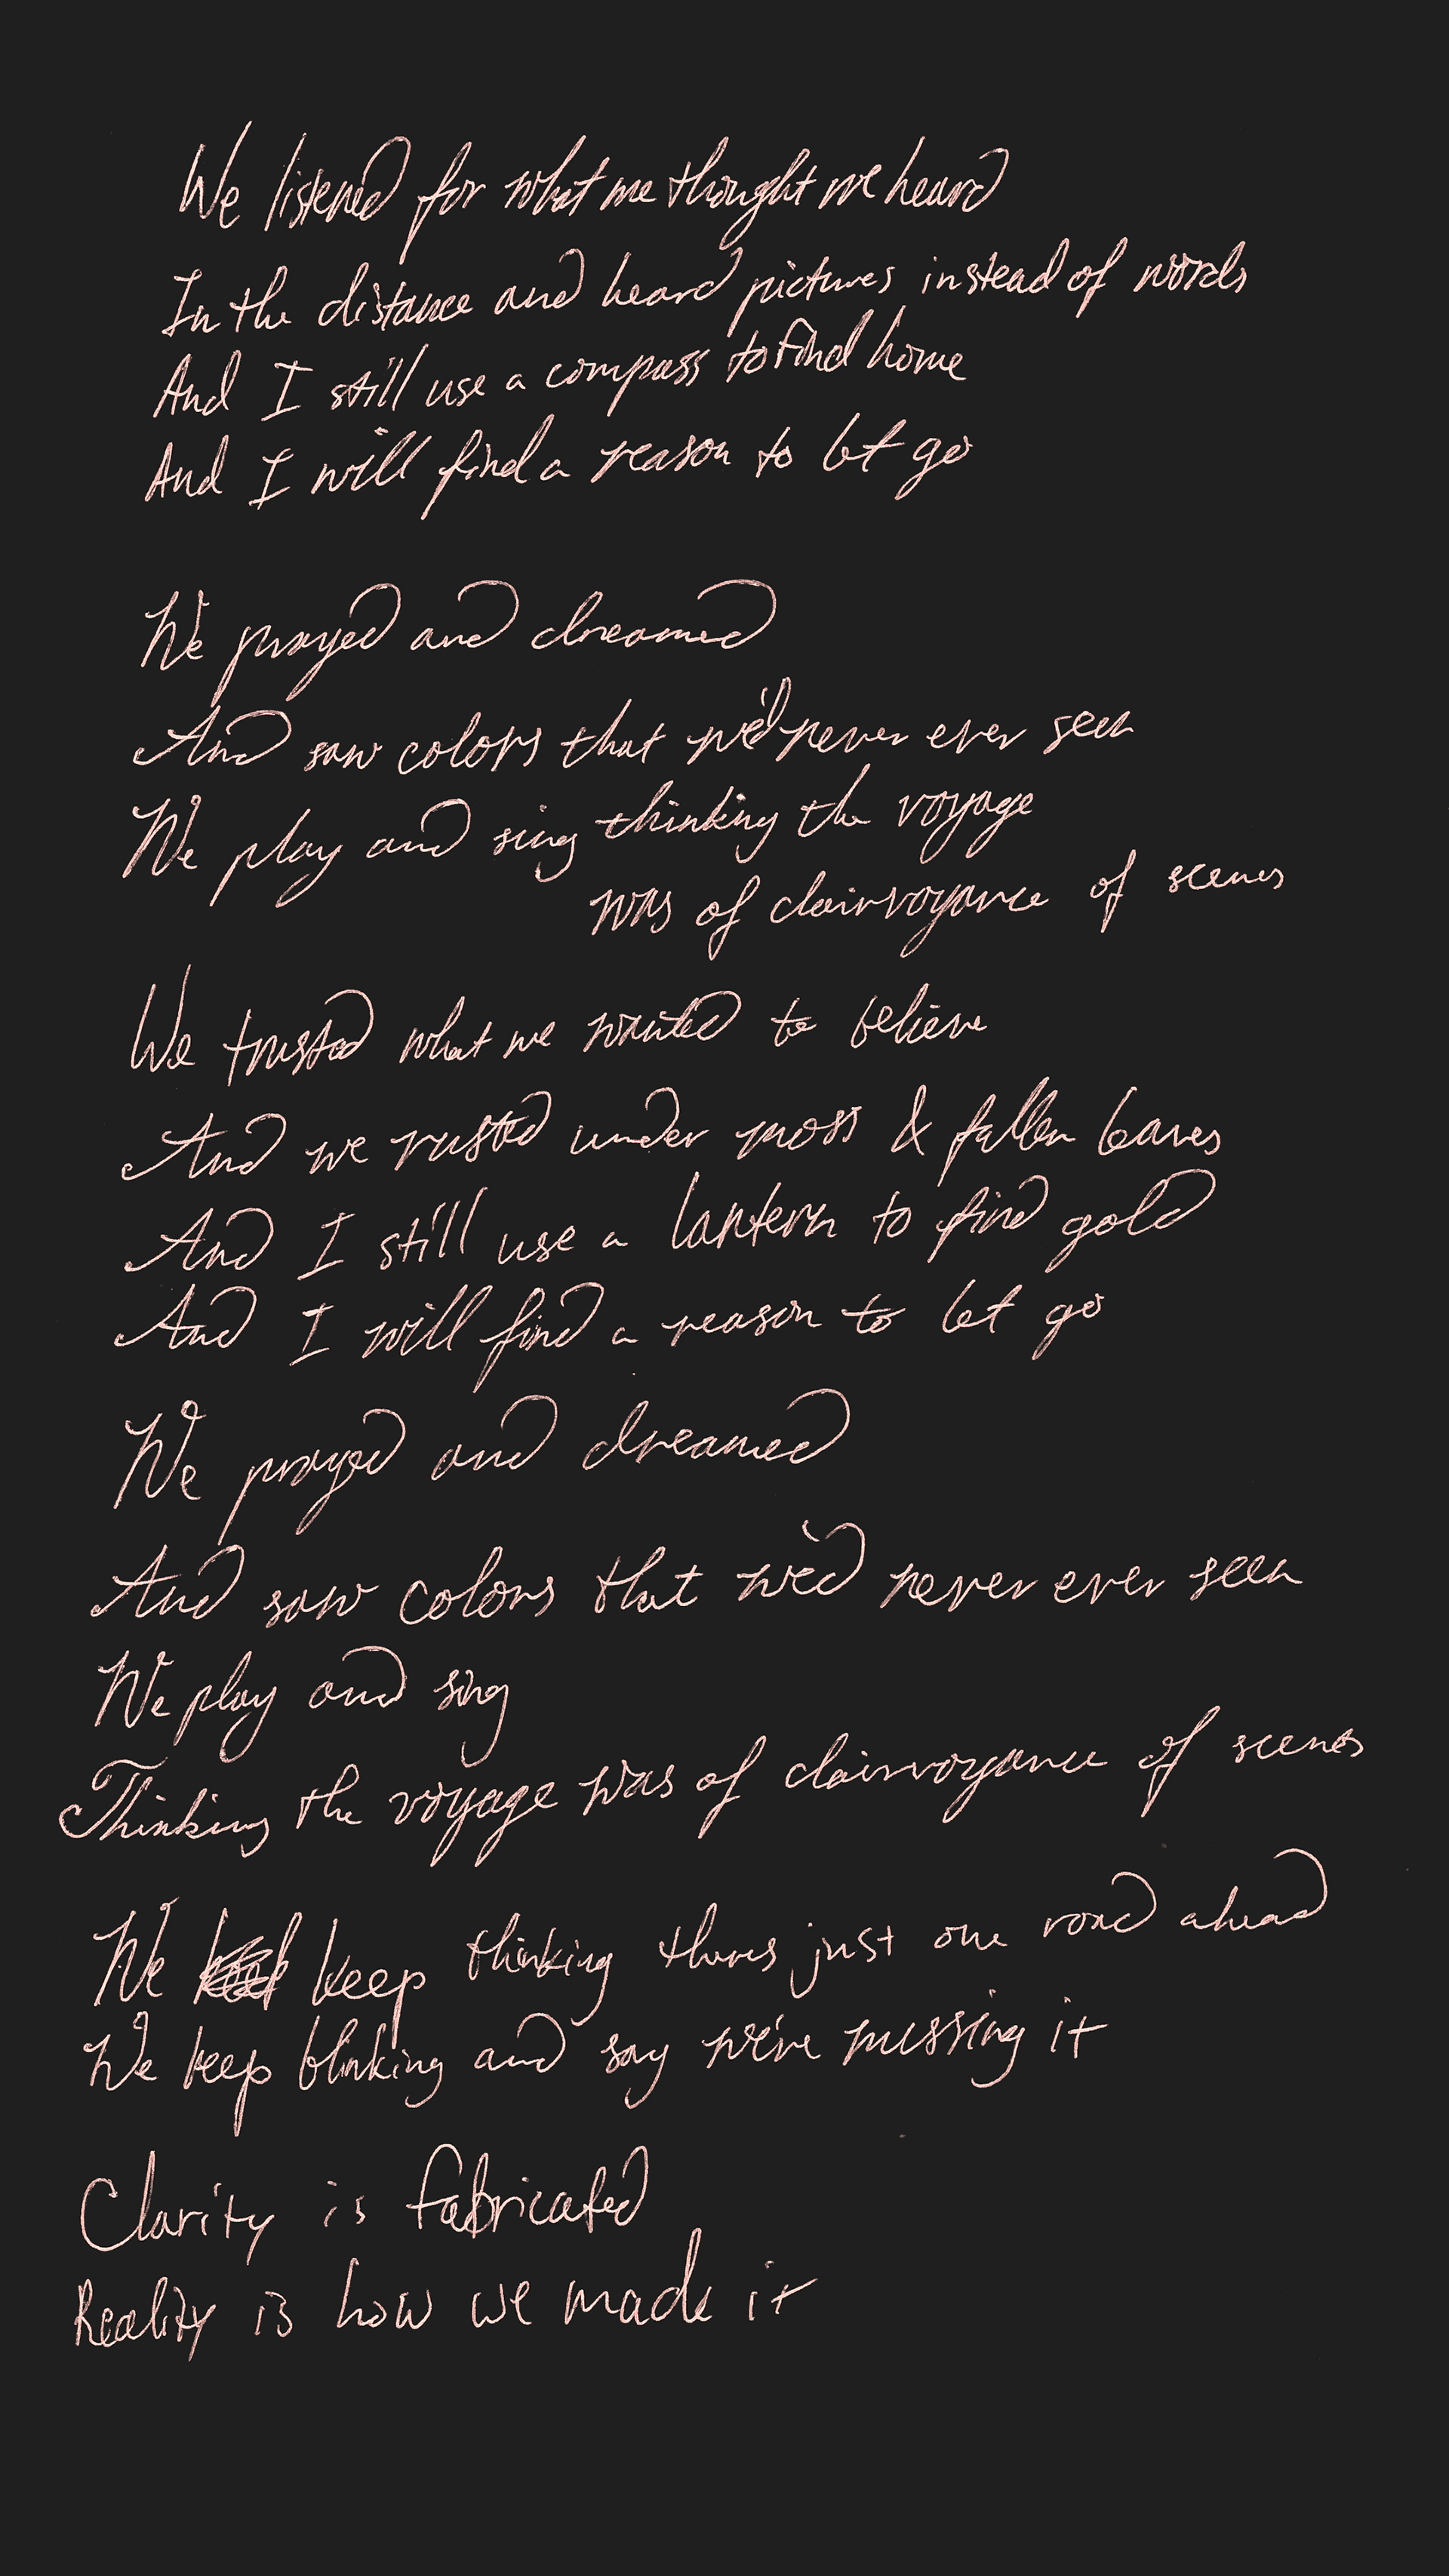 We listened for what we thought we heard
In the distance and heard pictures instead of words
And I still use a compass to find home
And I will find a reason to let go
We prayed and dreamed
And saw colors that we'd never ever seen
We play and sing thinking the voyage
was of clairvoyance of scenes
We trusted what we wanted to believe
And we rusted under moss & fallen leaves
And I still use a lantern to find gold
And I will find a reason to let go
We prayed and dreamed
And saw colors that we'd never ever seen
We play and sing
Thinking the voyage was of clairvoyance of scenes
We keep thinking theres just one road ahead
We keep blinking and say we're missing it
Clarity is fabricated
Reality is how we made it